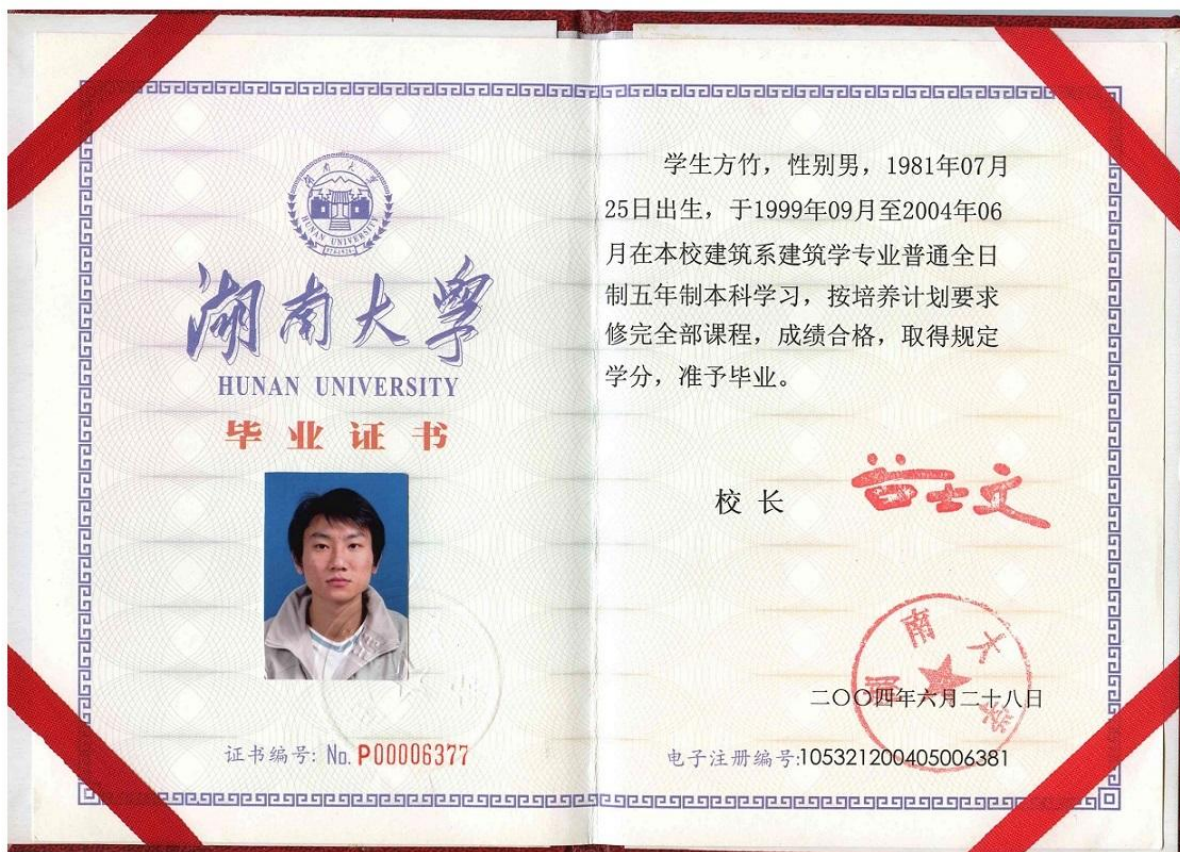 湖南大学
HUNAN UNIVERSITY
湖南大学
HUNAN UNIVERSITY
毕业证书
证书编号: No. P00006377
学生方竹，性别男，1981年07月
25日出生，于1999年09月至2004年06
月在本校建筑系建筑学专业普通全日
制五年制本科学习，按培养计划要求
修完全部课程，成绩合格，取得规定
学分，准予毕业。
校 长
湖南大学
二〇〇四年六月二十八日
电子注册编号:105321200405006381